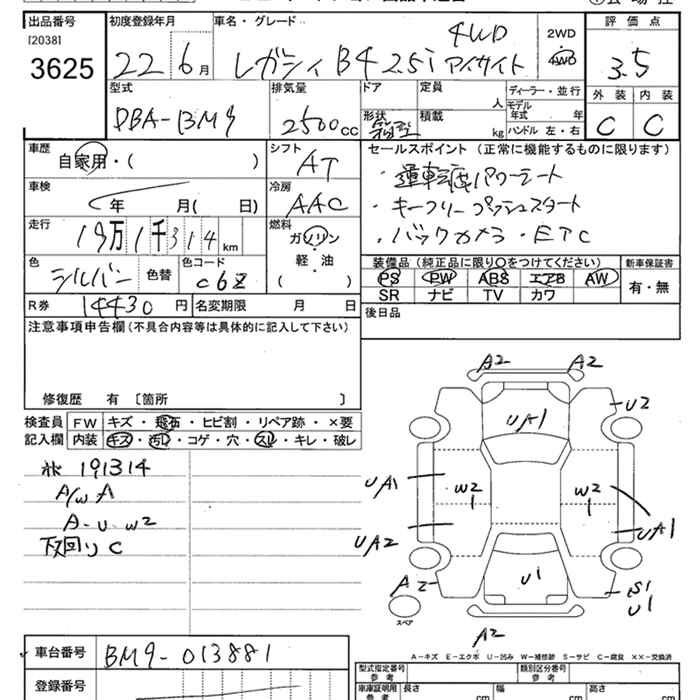 出品番号
[2038]
3625
初度登録年月
22 6 月
車名・グレード
4WD
レガシィ B4 2.5i アイサイト
2WD
4WD
評価点
3.5
外装 内装
C C
型式
DBA-BM9
排気量
2500 cc
ドア
定員
人
形状
積載
kg
ディーラー・並行
モデル年式 年
ハンドル 左・右
車歴
自家用・( )
シフト
AT
セールスポイント (正常に機能するものに限ります)
・運転席パワーシート
・キーフリー プッシュスタート
・バックカメラ・ETC
車検
年 月( 日)
冷房
AAC
走行
19万1千314 km
燃料
ガソリン
軽・油
( )
色
シルバー
色替
色コード
C6Z
装備品 (純正品に限り○をつけてください)
PS PW ABS エアB AW
SR ナビ TV カワ
新車保証書
有・無
R券
14430 円
名変期限 月 日
後日品
注意事項申告欄 (不具合内容等は具体的に記入して下さい)
修復歴 有 〔箇所 〕
検査員記入欄
FW キズ・飛石・ヒビ割・リペア跡・×要
内装 キズ・汚れ・コゲ・穴・スレ・キレ・破レ
191314
A/W A
A-U W2
下回り C
A2 A2
UA1
U2
UA1
W2
1
W2
1
UA1
UA2
A2
U1
S1
U1
スペア
A2
A-キズ E-エクボ U-凹み W-補修跡 S-サビ C-腐食 ××-交換済
車台番号
BM9-013881
登録番号
型式指定番号
参考
類別区分番号
参考
車庫証明用
参考
長さ cm
幅 cm
高さ cm